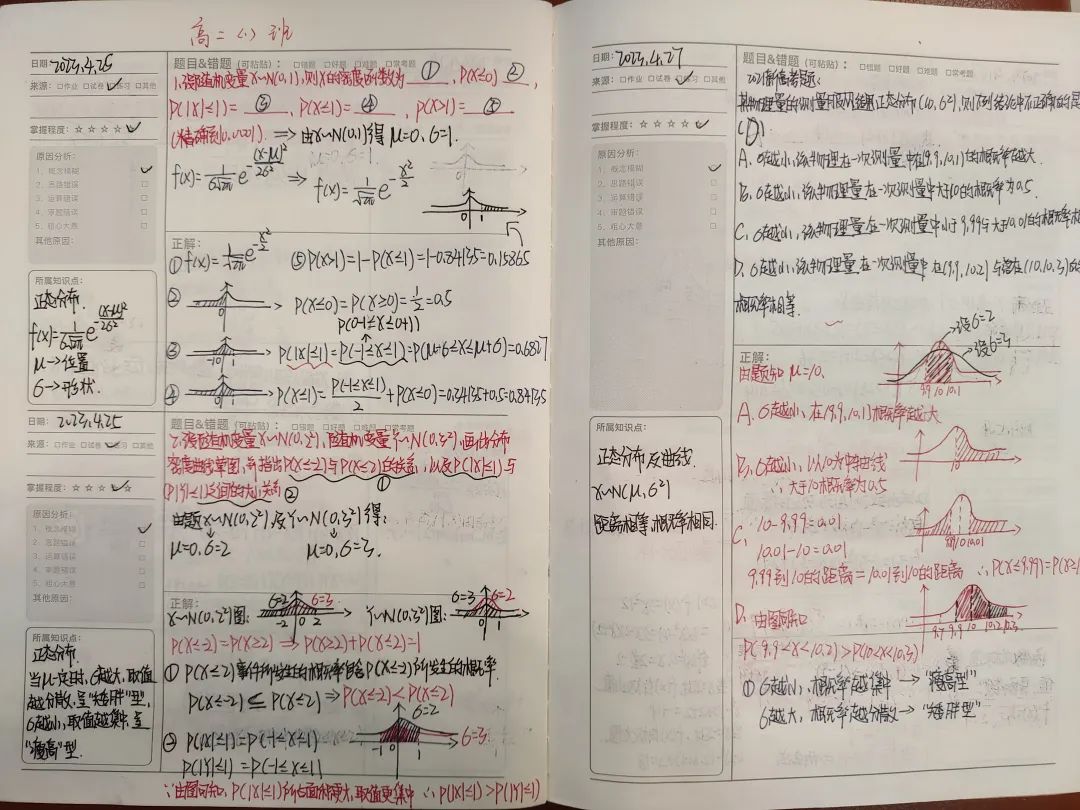 高二(1)班
日期: 2023.4.25
来源: □作业 □试卷 ☑练习 □其他
掌握程度: ☆ ☆ ☆ ☆
原因分析:
1、概念模糊 ✓
2、思路错误 □
3、运算错误 □
4、审题错误 □
5、粗心大意 □
其他原因:
所属知识点:
正态分布.
f(x)=1/(σ√2π) e^(-(x-μ)²/2σ²)
μ→位置
σ→形状.
题目&错题 (可粘贴): □错题 □好题 □难题 □常考题
1.设随机变量X~N(0,1),则X的密度函数为 ① , P(X≤0) ② ,
P(|X|≤1)= ③ , P(X≤1)= ④ , P(X>1)= ⑤
(精确到0.0001). ⇒ 由X~N(0,1)得 μ=0, σ=1.
f(x)=1/(σ√2π) e^(-(x-μ)²/2σ²) ⇒ f(x)=1/√2π e^(-x²/2)
0 1
正解:
① f(x)=1/√2π e^(-x²/2) ⑤ P(X>1)=1-P(X≤1)=1-0.84135=0.15865
② 0 P(X≤0)=P(X≥0)=1/2=0.5
P(0-1≤X≤0+1)
③ -1 0 1 P(|X|≤1)=P(-1≤X≤1)=P(μ-σ≤X≤μ+σ)=0.6827
④ 0 1 P(X≤1)=P(-1≤X≤1)/2+P(X≤0)=0.34135+0.5=0.84135
日期: 2023.4.25
来源: □作业 □试卷 ☑练习 □其他
掌握程度: ☆ ☆ ☆ ☆
原因分析:
1、概念模糊 ✓
2、思路错误 □
3、运算错误 □
4、审题错误 □
5、粗心大意 □
其他原因:
所属知识点:
正态分布.
当μ一定时,σ越大,取值
越分散,呈"矮胖"型,
σ越小,取值越集中,呈
"瘦高"型.
题目&错题 (可粘贴): □错题 □好题 □难题 □常考题
2.设随机变量X~N(0,2²),随机变量Y~N(0,3²),画出分布
密度曲线草图,并指出P(X≤-2)与P(X≤2)的关系,以及P(|X|≤1)与
P(|Y|≤1)之间的大小关系 ② ①
由题X~N(0,2²)及Y~N(0,3²)得:
μ=0,σ=2 μ=0,σ=3.
正解:
X~N(0,2²)图: σ=2 σ=3 -2 0 2 Y~N(0,3²)图: σ=3 σ=2 0 1
P(X≤-2)=P(X≥2) ⇒ P(X≥2)+P(X≤2)=1
① P(X≤2)事件所发生的概率包含P(X≤-2)所发生的概率.
P(X≤-2)⊆P(X≤2) ⇒ P(X≤-2)<P(X≤2)
② P(|X|≤1)=P(-1≤X≤1) σ=2
P(|Y|≤1)=P(-1≤X≤1) -1 0 1 σ=3
∵由图可知,P(|X|≤1)所占面积更大,取值更集中 ∴P(|X|≤1)>P(|Y|≤1)
日期: 2023.4.27
来源: □作业 □试卷 ☑练习 □其他
掌握程度: ☆ ☆ ☆ ☆
原因分析:
1、概念模糊 ✓
2、思路错误 □
3、运算错误 □
4、审题错误 □
5、粗心大意 □
其他原因:
所属知识点:
正态分布及曲线.
X~N(μ,σ²)
距离相等,概率相同.
题目&错题 (可粘贴): □错题 □好题 □难题 □常考题
2021新高考题:
某物理量的测量结果服从正态分布(10,σ²),则下列结论中不正确的是
(D)
A. σ越小,该物理量在一次测量中在(9.9,10.1)的概率越大.
B. σ越小,该物理量在一次测量中大于10的概率为0.5
C. σ越小,该物理量在一次测量中小于9.99与大于10.01的概率相
D. σ越小,该物理量在一次测量中在(9.9,10.2)与落在(10,10.3)的
概率相等.
正解:
设σ=2
设σ=3
由题知 μ=10.
9.9 10 10.1
A. σ越小,在(9.9,10.1)概率越大
B. σ越小,以10为中轴曲线
∴大于10概率为0.5
C. ∵10-9.99=0.01
10.01-10=0.01
9.99到10的距离=10.01到10的距离 ∴P(X≤9.99)=P(X≥1
D. 由图可知
9.9 10 10.2 10.3
P(9.9<X<10.2)>P(10<X<10.3)
① σ越小,概率越集中 → "瘦高型"
σ越大,概率越分散 → "矮胖型"